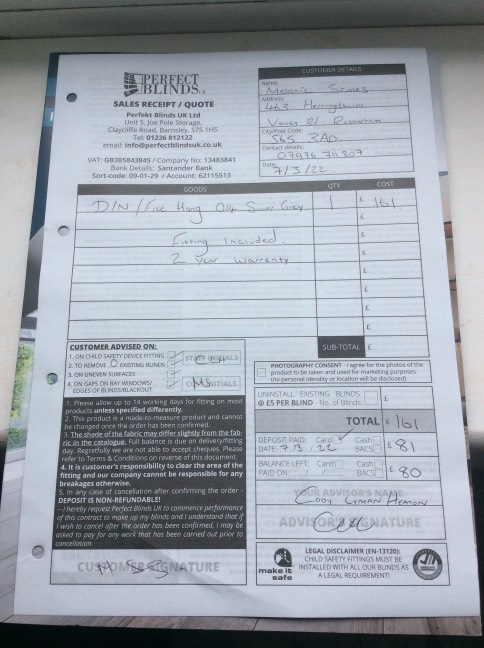 PERFECT
BLINDS UK
SALES RECEIPT / QUOTE
Perfekt Blinds UK Ltd
Unit 5, Joe Pole Storage,
Claycliffe Road, Barnsley, S75 1HS
Tel: 01226 812122
email: info@perfectblindsuk.co.uk
VAT: GB385843845 / Company No: 13483841
Bank Details: Santander Bank
Sort-code: 09-01-29 / Account: 62115513
CUSTOMER DETAILS
Name
Melanie
Address
463 Herringthorpe
Valley Rd Rotherham
City/Post Code:
S65 3AD
Contact details:
07976 711807
Date
7/3/22
GOODS QTY COST
D/N / Grey 1 £ 161
£
Fitting Included. £
2 Year Warrenty £
£
£
£
£
SUB-TOTAL £
CUSTOMER ADVISED ON:
1. ON CHILD SAFETY DEVICE FITTING
2. TO REMOVE 0 EXISTING BLINDS
3. ON UNEVEN SURFACES
4. ON GAPS ON BAY WINDOWS/
EDGES OF BLINDS/BLACKOUT
STAFF INITIALS
CUST INITIALS
MS
PHOTOGRAPHY CONSENT - I agree for the photos of the
product to be taken and used for marketing purposes.
(no personal identity or location will be disclosed)
UNINSTALL EXISTING BLINDS
@ £5 PER BLIND - No. of Blinds: £
TOTAL £ 161
DEPOSIT PAID: Card Cash
DATE: 7/3/22 BACS £ 81
BALANCE LEFT: Card Cash
PAID ON: / / BACS £ 80
YOUR ADVISOR'S NAME
Cody Lyman Heaton
ADVISOR'S SIGNATURE
1. Please allow up to 14 working days for fitting on most
products unless specified differently.
2. This product is made-to-measure product and cannot
be changed once the order has been confirmed.
3. The shade of the fabric may differ slightly from the fab-
ric in the catalogue. Full balance is due on delivery/fitting
day. Regretfully we are not able to accept cheques. Please
refer to Terms & Conditions on reverse of this document.
4. It is customer's responsibility to clear the area of the
fitting and our company cannot be responsible for any
breakages otherwise.
5. In any case of cancellation after confirming the order -
DEPOSIT IS NON-REFUNDABLE!
– I hereby request Perfect Blinds UK to commence performance
of this contract to make up my blinds and I understand that if
I wish to cancel after the order has been confirmed, I may be
asked to pay for any work that has been carried out prior to
cancellation.
CUSTOMER SIGNATURE
make it
safe
LEGAL DISCLAIMER (EN-13120):
CHILD SAFETY FITTINGS MUST BE
INSTALLED WITH ALL OUR BLINDS AS
A LEGAL REQUIREMENT!